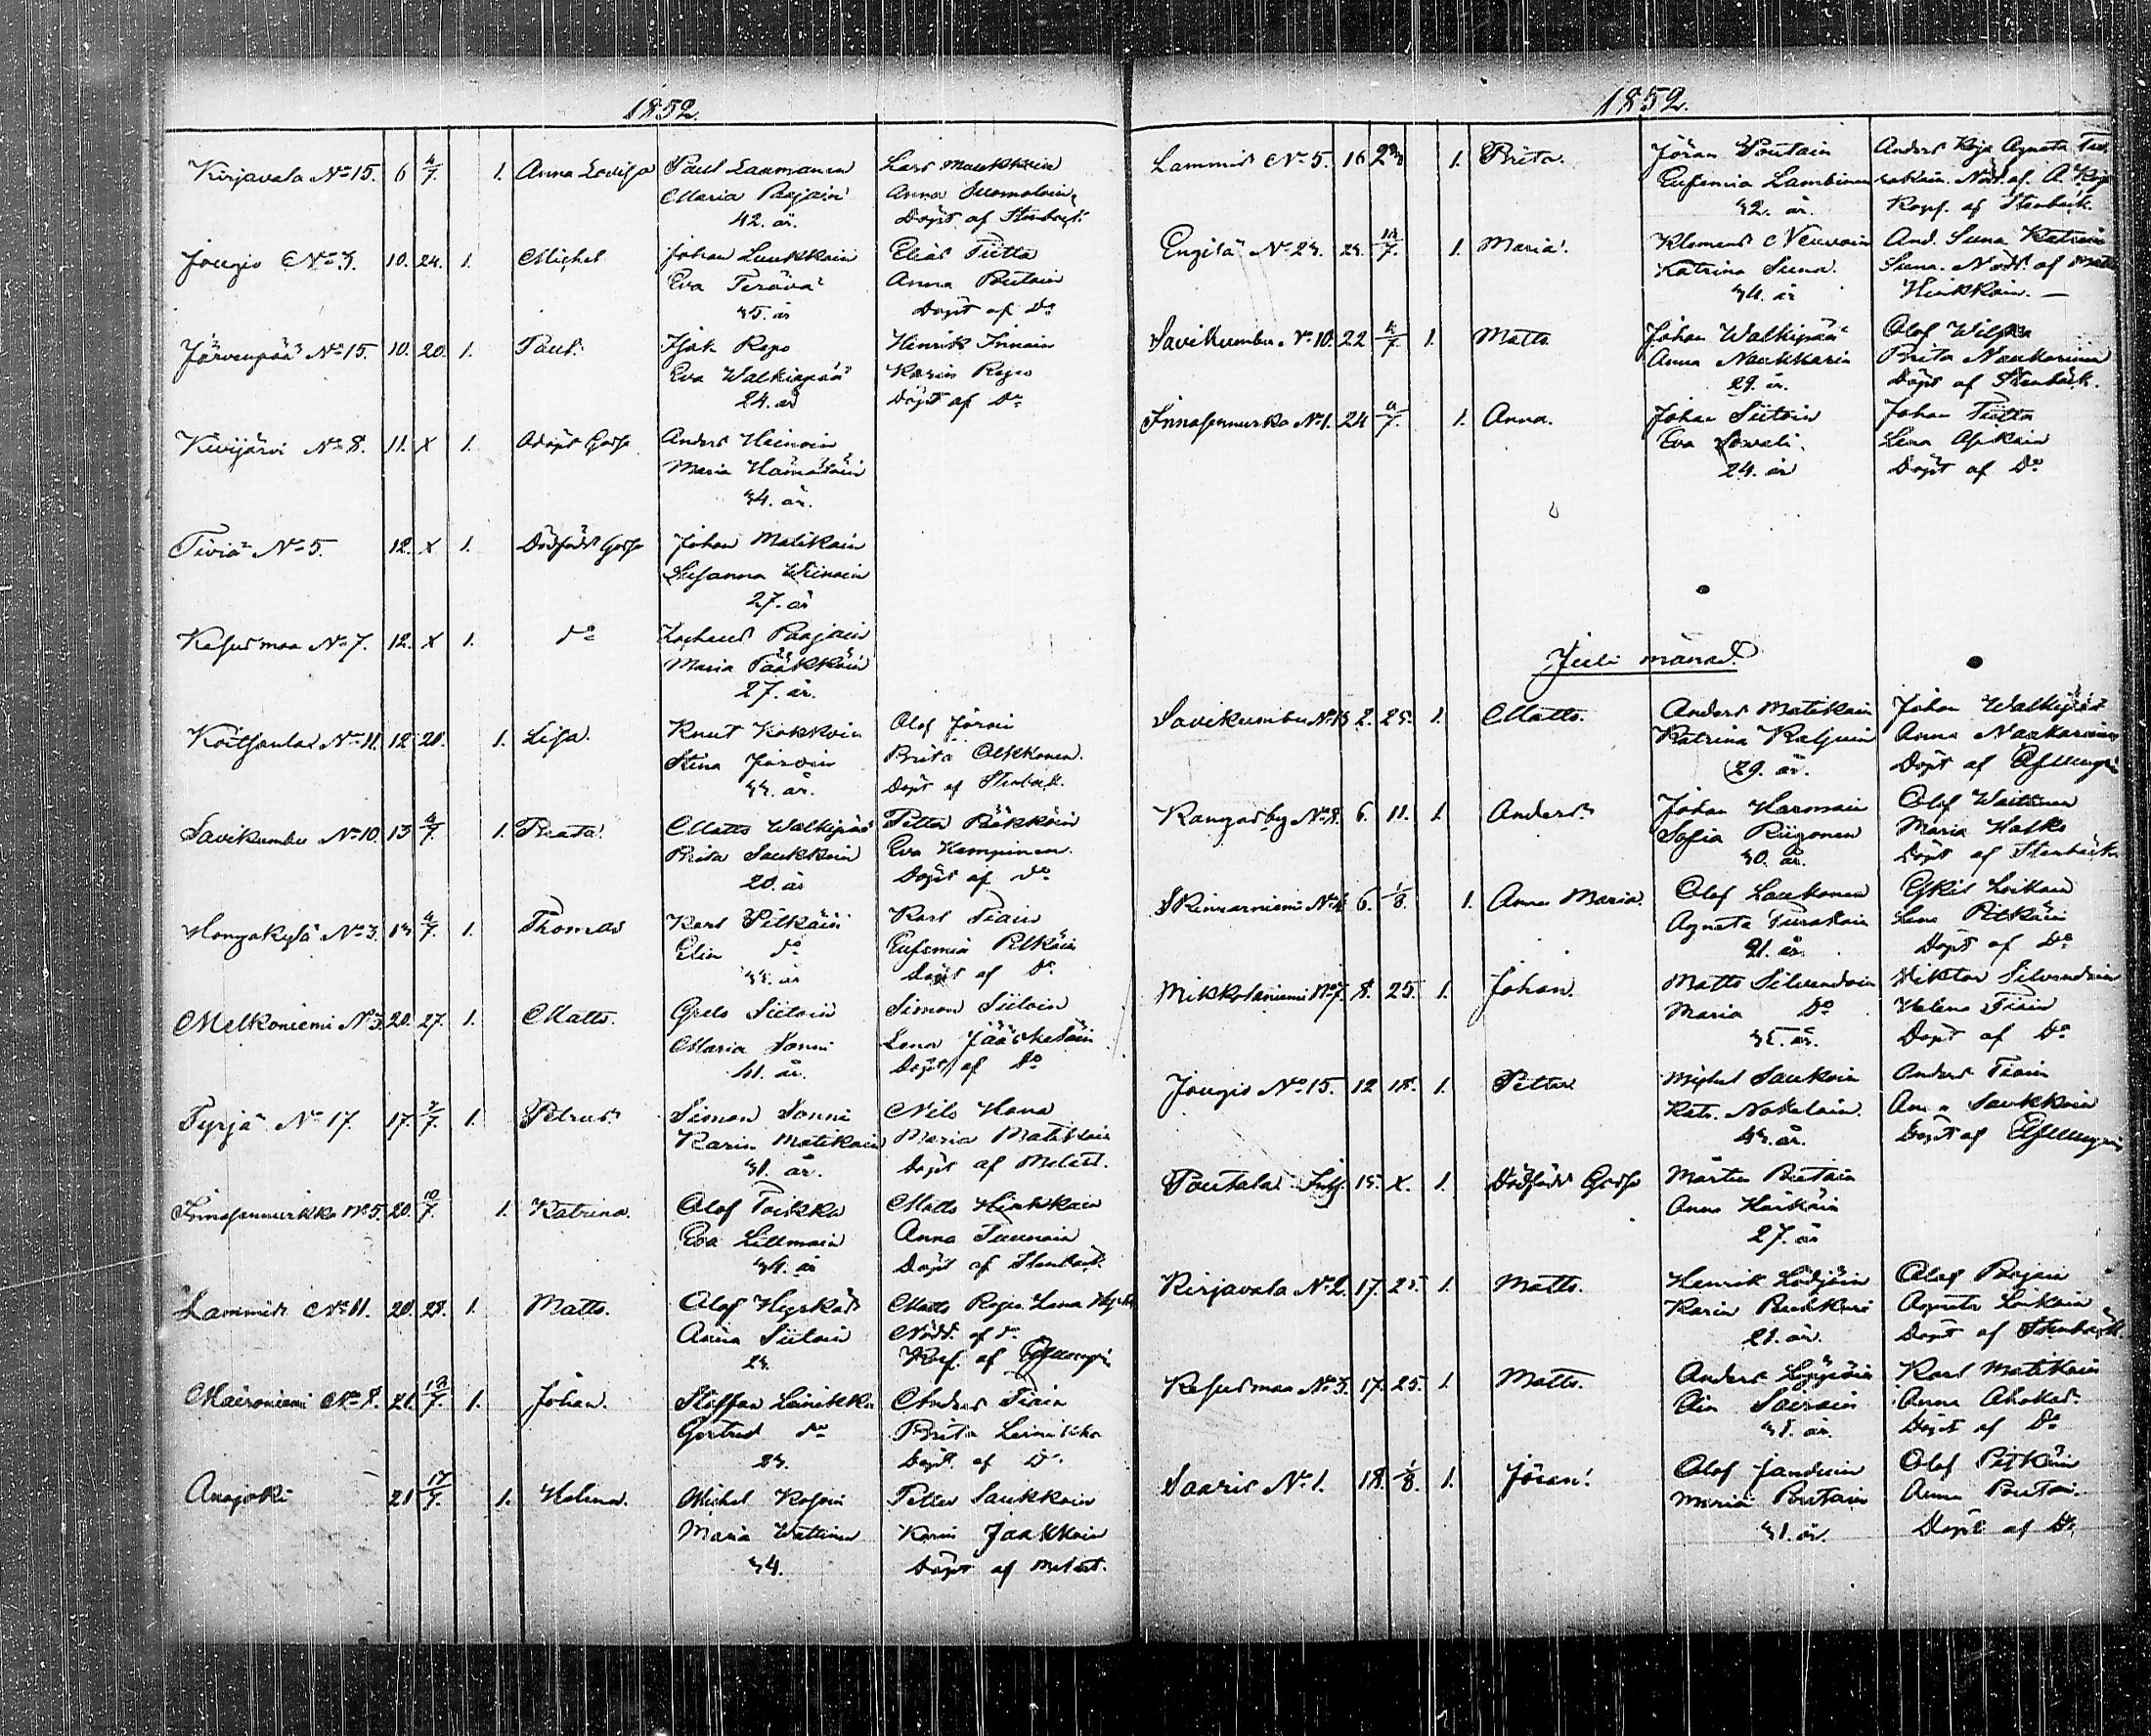 1852.
Kirjavala No 15. 6 4/7. 1. Anna Lovisa Paul Laamanen Lars Maukkoin
Maria Parjain Anna Suomalain
42. år. Döpt af Stenbäck
Jougio No 3. 10. 24. 1. Michel Johan Luukkain Elias Tiitta
Eva Terävä Anna Poutain
35. år Döpt af Do
Järvenpää No 15. 10. 20. 1. Paul. Isak Repo Henrik Innain
Eva Walkiapää Karin Repo
24. år Döpt af Do
Kivijärvi No 8. 11. X 1. Odöpt Gosse Anders Heinoin
Maria Hämäläin
34. år.
Tiviä No 5. 12. X 1. Dödfödt Gosse Johan Matikain
Susanna Wänäin
27. år
Kesusmaa No 7. 12. X 1. do Parjain
Maria Pääkköin
27. år.
No 11. 12 20. 1. Lisa. Knut Kokkoin Olof Jöroin
Stina Jöroin Brita Olkkonen.
33. år. Döpt af Stenbäck.
Savikumbu No 10. 13 4/7. 1. Beata. Matts Walkiapää Petter Pääkköin
Brita Saukkoin Eva Kempinen.
20. år Döpt af do
Hongakylä No 3. 13 4/7. 1. Thomas Karl Pitkäin Karl Tiain
Elin do Eufemia Pitkäin
år Döpt af Do
Melkoniemi No 3. 20. 27. 1. Matts. Grels Siitoin Simon Siitoin
Maria Sonni Lena Jääskeläin
41. år. Döpt af Do
Tyrjä No 17. 17. 2/7. 1. Petrus. Simon Sonni Nils Hana
Karin Matikain Maria Matikain
31. år. Döpt af Melart.
Innasennurkka No 5. 20. 10/7. 1. Katrina. Olof Toikka Matts Hinkkain
Eva Lillmain Anna Tuunain
34. år Döpt af Stenbäck
Lammis No 11. 20. 28. 1. Matts. Olof Hyrskäs Matts Repo Lena
Anna Siitoin Nöd. af do
23. Konf. af
Maironiemi No 8. 21. 13/7. 1. Johan. Staffan Leinikka Anders Tiain
Gertrud do Brita Leinikka
23. Döpt af Do
Anajoki 21 17/7. 1. Helena. Michel Kospin Petter Saukkoin
Maria Wattinen Karin Jaakkoin
34. Döpt af Melart.
1852.
Lammis No 5. 16 1. Brita. Jöran Poutain Anders Repo Agneta
Eufemia Lambinen Nöd. af A. Repo
32. år. Konf. af Stenbäck.
Engilä No 23. 23. 14/7. 1. Maria. Klemens Neuvoin And. Suna Katrina
Katrina Suna. Suna. Nöd. af Matts
34. år Hinkkain.
Savikumbu No 10. 22 4/7. 1. Matts Johan Walkiapää Olof
Anna Naukkarin Brita Naukarinen
29. år. Döpt af Stenbäck.
Innasennurka No 1. 24 4/7. 1. Anna. Johan Siitoin Johan Tiitta
Eva Lena
24. år Döpt af Do
Juli månad.
Savikumbu No 13 2. 25. 1. Matts. Anders Matikain Johan Walkiapää
Katrina Raljuin Anna Naukarinen
29. år. Döpt af
Kangasby No 8. 6. 11. 1. Anders. Johan Harmain Olof Waittinen
Sofia Riigonen Maria Halko
30. år. Döpt af Stenbäck
Skinnarniemi No 4 6. 1/8. 1. Anna Maria. Olof Laukonen Eskil Loikan
Agneta Turakain Lena Pitkäin
21. år Döpt af Do
Mikkolaniemi No 7. 8. 25. 1. Johan. Matts Silvendoin Wiktor Silvendoin
Maria Do Helena Tiain
35. år. Döpt af Do
Jougio No 15. 12 18. 1. Petter Michel Saukoin Anders Tiain
Katr. Nokelain. Anna Saukkoin
år. Döpt af
Poutala 15. X. 1. Dödfödt Gosse Mårten Poutain
Anna Häikäin
27. år
Kirjavala No 2. 17. 25. 1. Matts. Henrik Lödjöin Olof Parjain
Karin Agneta Loikain
21. år. Döpt af Stenbäck
Kesusmaa No 3. 17. 25. 1. Matts. Anders Karl Matikain
Anna Ahokas.
31. år. Döpt af Do
Saaris No 1. 18. 1/8. 1. Jöran. Olof Janduin Olof Pitkäin
Maria Poutain Anna Poutai.
31. år. Döpt af Do